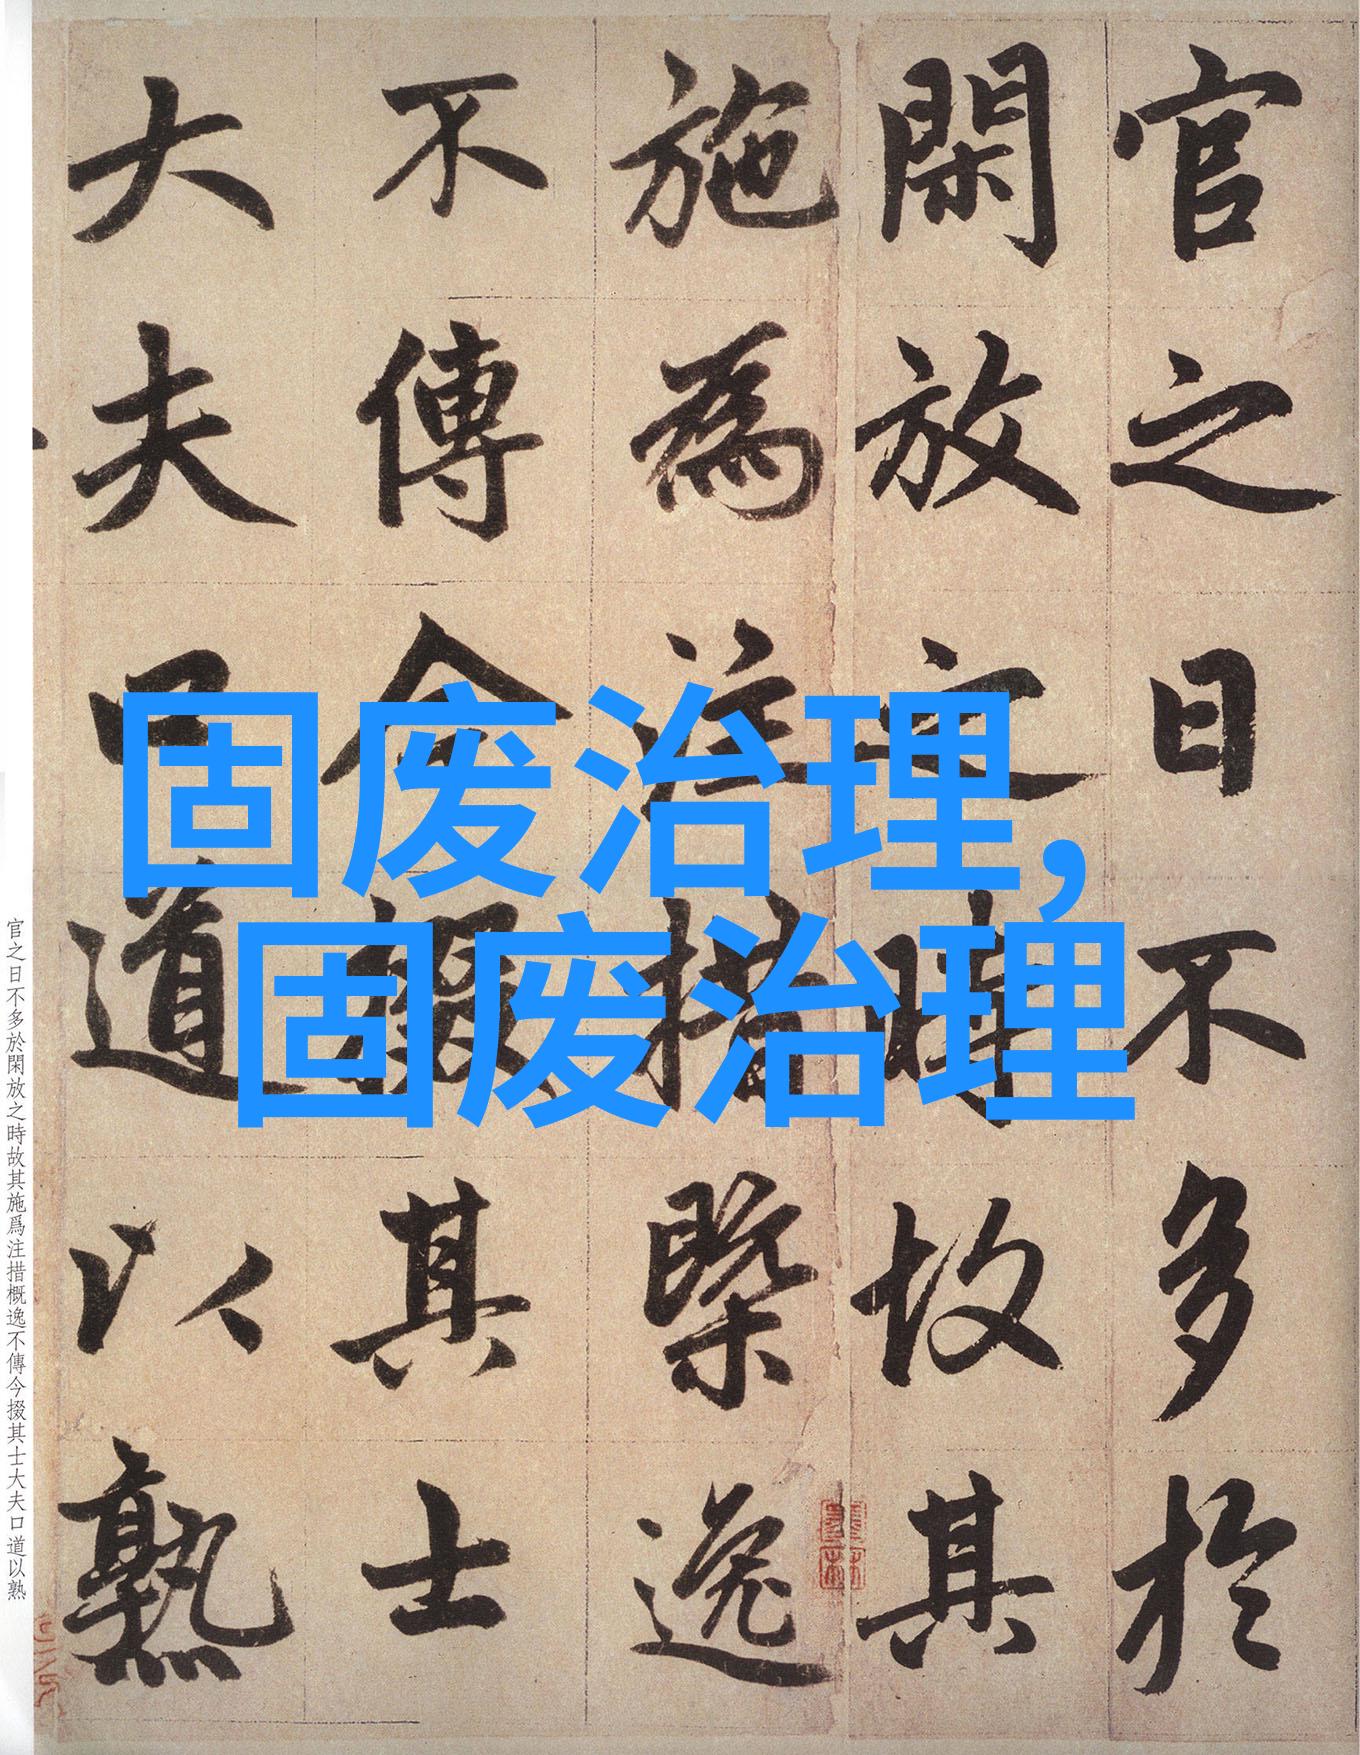 官之日不多於
閑放之時故其
施為注措槩逸
不傳今掇其士
大夫口道以熟
固废治理，
固废治理
官之日不多於閑放之時故其施爲注措概逸不傳今掇其士大夫口道以熟